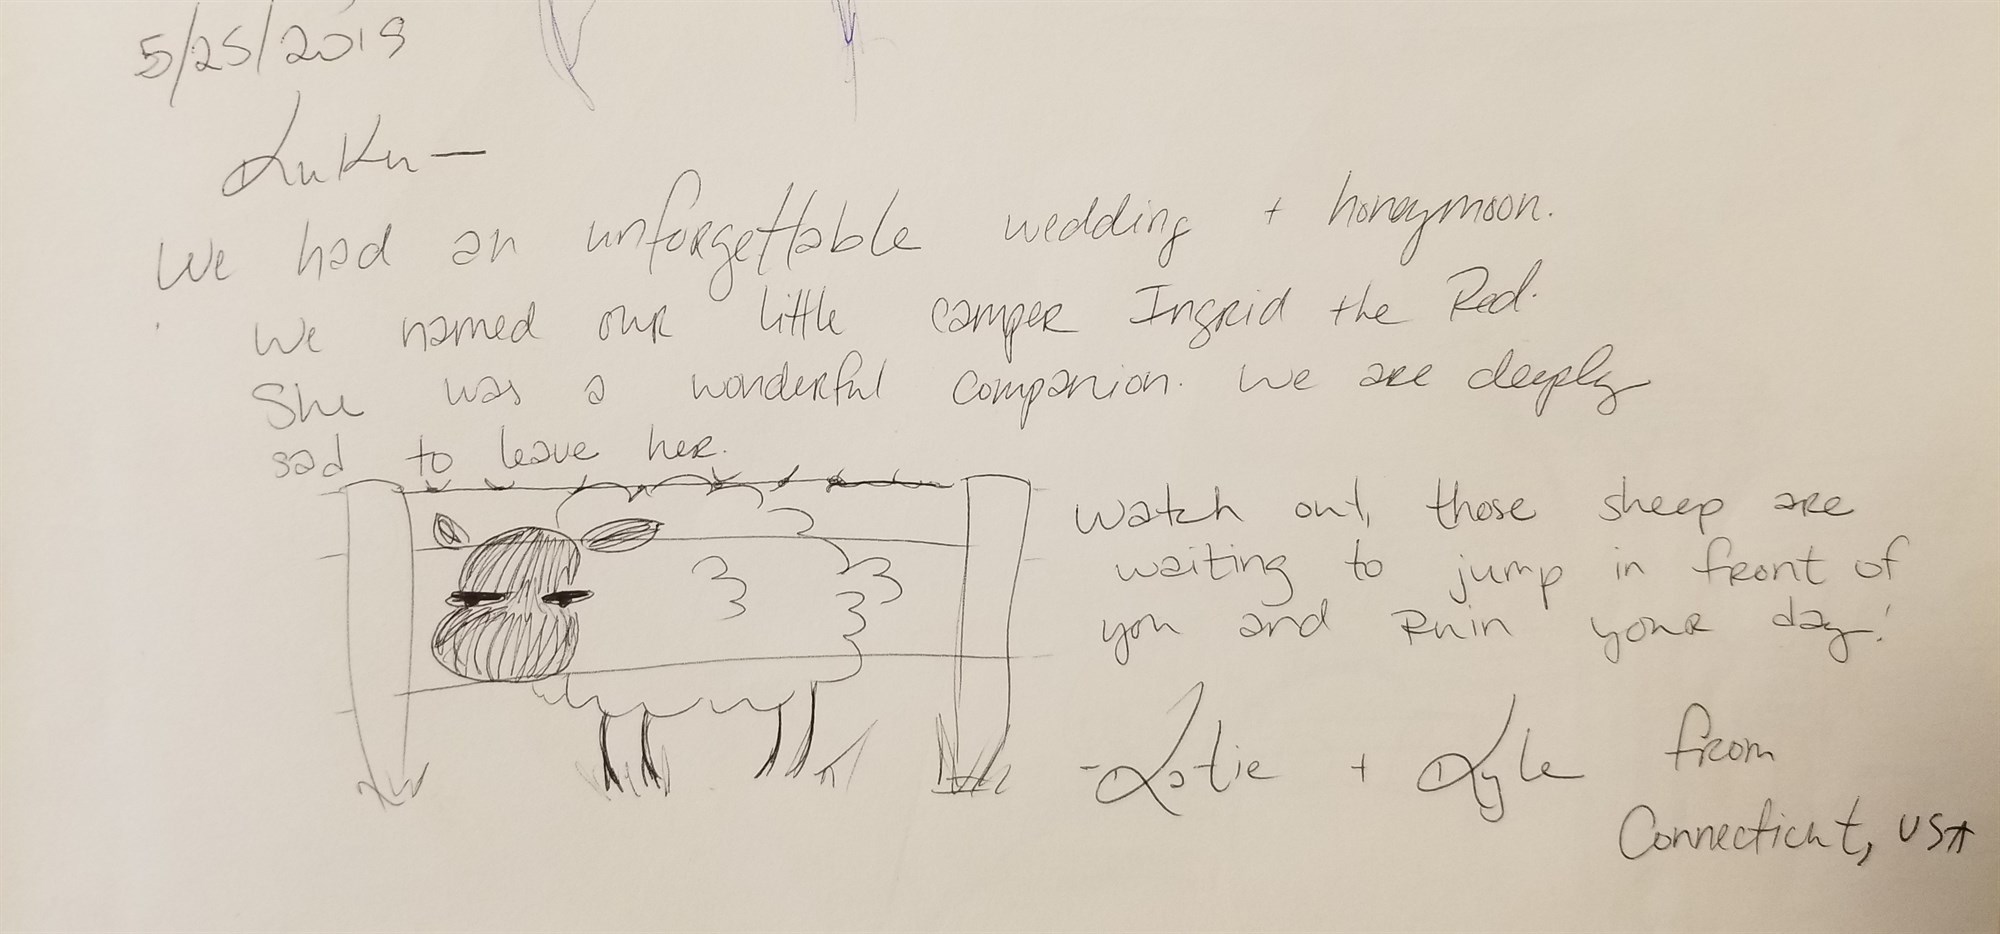 5/25/2019
KuKu —
We had an unforgettable wedding + honeymoon.
We named our little camper Ingrid the Red.
She was a wonderful companion. We are deeply
sad to leave her.
Watch out, those sheep are
waiting to jump in front of
you and Ruin your day!
-Katie + Kyle from
Connecticut, USA